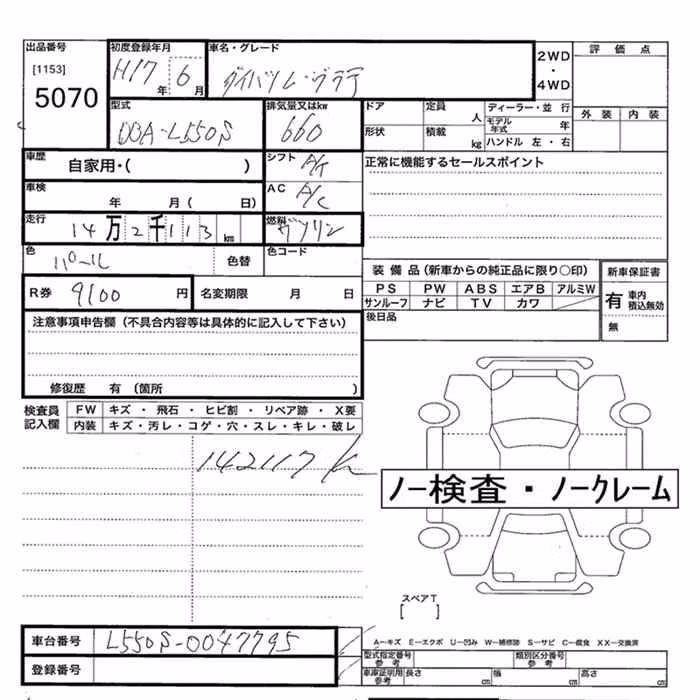 出品番号
[1153]
5070
初度登録年月
H17年 6月
車名・グレード
ダイハツ ムーヴラテ
2WD
・
4WD
評価点
外装 内装
型式
DBA-L550S
排気量又はkw
660
ドア
定員 人
形状
積載 kg
ディーラー・並行
モデル年式 年
ハンドル 左・右
車歴
自家用・( )
シフト
A/T
正常に機能するセールスポイント
車検
年 月( 日)
AC
A/C
走行
14万2千113km
燃料
ガソリン
色
パール
色替
色コード
R券 9100円
名変期限 月 日
装備品(新車からの純正品に限り○印)
PS PW ABS エアB アルミW
サンルーフ ナビ TV カワ
後日品
新車保証書
有 車内積込無効
無
注意事項申告欄(不具合内容等は具体的に記入して下さい)
修復歴 有 (箇所 )
検査員記入欄
FW キズ・飛石・ヒビ割・リペア跡・X要
内装 キズ・汚レ・コゲ・穴・スレ・キレ・破レ
142117k
ノー検査・ノークレーム
スペアT
[ ]
車台番号
L550S-0047795
登録番号
A－キズ E－エクボ U－凹み W－補修跡 S－サビ C－腐食 XX－交換済
型式指定番号 参考
類別区分番号 参考
車庫証明用 参考
長さ cm
幅 cm
高さ cm